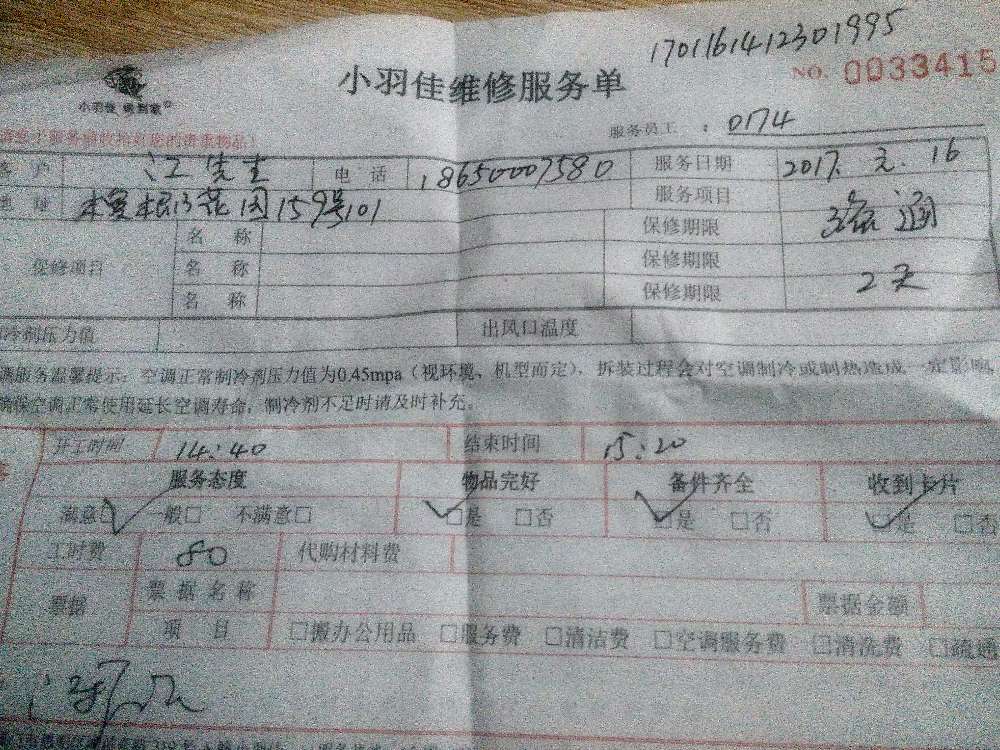 1701161412301995
NO. 0033415
小羽佳维修服务单
小羽佳
服务员工 ： 0174
客户 江先生 电话 18650007580 服务日期 2017. 元. 16
花园159号101 服务项目
疏通
保修项目
名称 保修期限
名称 保修期限
名称 保修期限 2天
冷剂压力值 出风口温度
调服务温馨提示：空调正常制冷剂压力值为0.45mpa（视环境、机型而定），拆装过程会对空调制冷或制热造成一定影响，
确保空调正常使用延长空调寿命，制冷剂不足时请及时补充。
开工时间 14:40 结束时间 15:20
服务态度 物品完好 备件齐全 收到卡片
满意□ 一般□ 不满意□ □是 □否 □是 □否 □是 □否
工时费 80 代购材料费
票据 票据名称 票据金额
项目 □搬办公用品 □服务费 □清洁费 □空调服务费 □清洗费 □疏通